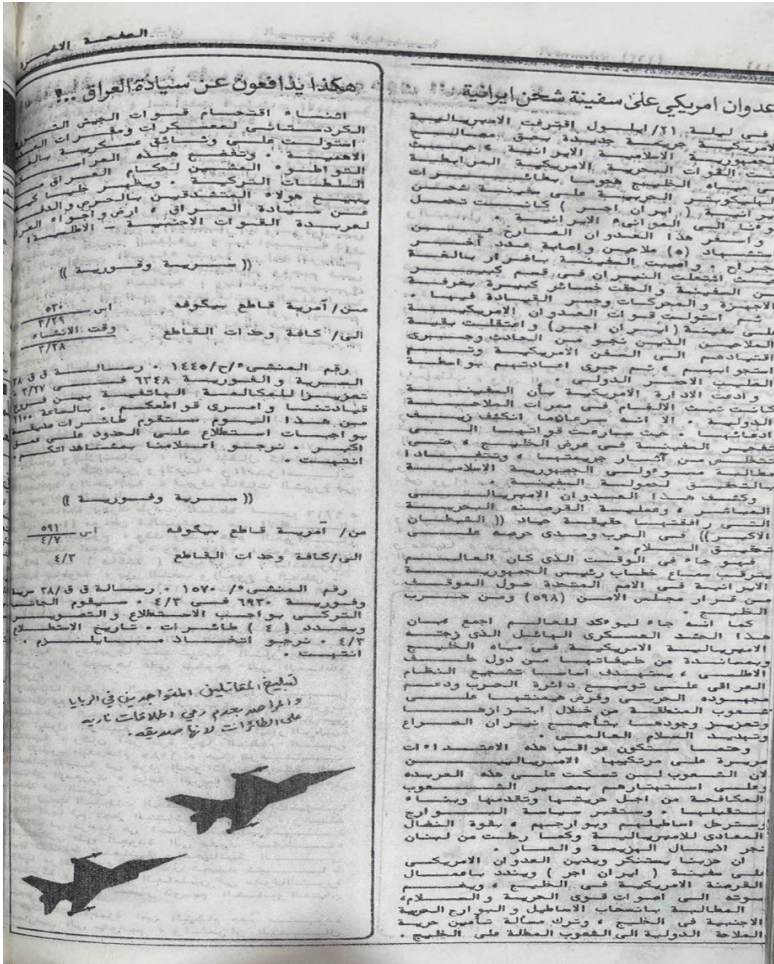 الصفحة الاخيرة
عدوان امريكي على سفينة شحن ايرانية
في ليلة ٢١/ايلول اقترفت الامبريالية
الامريكية جريمة جديدة بحق مصالح
الجمهورية الاسلامية الايرانية ، حيث
القوات البحرية الامريكية المرابطة
في مياه الخليج هجوما بطائرات
الهليكوبتر الحربية على سفينة شحن
ايرانية ( ايران اجر ) كانت تحمل
الى الموانىء الايرانية .
واسفر هذا العدوان الصارخ عن
استشهاد (٥) ملاحين واصابة عدد آخر
بجراح ، واصيبت السفينة باضرار بالغة
اشتعلت النيران في قسم كبير
من السفينة والحقت خسائر كبيرة بغرفة
الاجهزة والمحركات وجسر القيادة فيها .
ثم استولت قوات العدوان الامريكية
على سفينة ( ايران اجر) واعتقلت بقية
الملاحين الذين نجو من الحادث وجرى
اقتيادهم الى السفن الامريكية وتم
استجوابهم ، ثم جرى اعادتهم بواسطة
الاحمر الدولي .
وادعت الادارة الامريكية بأن السفينة
كانت تبث الالغام في ممرات الملاحة
الدولية . الا انه سرعان ما انكشف زيف
ادعائها . حيث سارعت قواتها الى
تفجير السفينة في عرض الخليج ، حتى
تتخلص من آثار جريمتها ، وتتفادى
مطالبة مسؤولي الجمهورية الاسلامية
بالتحقيق لحمولة السفينة .
وكشف هذا العدوان الامبريالي
المباشر ، وعملية القرصنة البحرية
التي رافقتها حقيقة حياد (( الشيطان
الاكبر)) في الحرب ومدى حرصه على
تحقيق السلام .
فهو جاء في الوقت الذي كان العالم
يترقب سماع خطاب رئيس الجمهورية
الايرانية في الامم المتحدة حول الموقف
من قرار مجلس الامن (٥٩٨) ومن حرب
الخليج .
كما انه جاء ليؤكد للعالم اجمع بان
هذا الحشد العسكري الهائل الذي زجته
الامبريالية الامريكية في مياه الخليج
وبمساندة من حليفاتها من دول حلف
الاطلسي ، يستهدف اساسا تشجيع النظام
العراقي على توسيع دائرة الحرب ودعم
مجهوده الحربي وفرض هيمنتها على
شعوب المنطقة من خلال ابتزازها
وتعزيز وجودها بتأجيج نيران الصراع
وتهديد السلام العالمي .
وحتما ستكون عواقب هذه الاعتداءات
مريرة على مرتكبيها الامبرياليين
لان الشعوب لن تسكت على هذه العربدة
وعلى استهتارهم بمصير الشعوب
المكافحة من اجل حريتها وتقدمها وبناء
مستقبلها ، وستقبر سياسة البوارج
وسترحل اساطيلهم وبوارجهم ، بقوة النضال
المعادي للامبريالية وكما رحلت من لبنان
تجر اذيال الهزيمة والعار .
ان حزبنا يستنكر ويدين العدوان الامريكي
على سفينة ( ايران اجر ) ويندد باعمال
القرصنة الامريكية في الخليج ، ويضم
صوته الى اصوات قوى الحرية والسلام،
المطالبة بانسحاب الاساطيل والبوارج الحربية
الاجنبية في الخليج ، وترك مسألة تأمين حرية
الملاحة الدولية الى الشعوب المطلة على الخليج .
هكذا يدافعون عن سيادة العراق ..!
اثناء اقتحام قوات الجيش الشعبي
الكردستاني لمعسكرات ومقرات
استولت على وثائق عسكرية بالغة
الاهمية . وتفضح هذه
التواطؤ المشين لحكام العراق مع
السلطات التركية . ويظهر
يبيح هؤلاء المتشدقين بالحرص والدفاع
عن سيادة العراق ، ارض واجواء العراق
لعربدة القوات الاجنبية – الاطلسية !
(( سرية وفورية ))
من/ آمرية قاطع بيكوفه اس ٥٣٠
٣/٢٩
الى/ كافة وحدات القاطع وقت الانشاء
٣/٢٨
رقم المنشىء/ح/١٤٤٥ . رسالة ق ق ٣٨
السرية والفورية ٦٣٤٨ في ٣/٢٧ .
تعزيزا للمكالمة الهاتفية بين
قيادتنا وامرى قواطعكم . بالساعة ١١٠٠
من هذا اليوم ستقوم طائرات
بواجبات استطلاع على الحدود على عمق
اكبر . نرجو اعلامنا بمشاهداتكم .
انتهت .
(( سرية وفورية ))
من/ آمرية قاطع بيكوفه اس ٥٩١
٤/٧
الى/كافة وحدات القاطع ٤/٣
رقم المنشىء/ ١٥٧٠ . رسالة ق ق/٣٨ سرية
وفورية ٦٩٣٠ في ٤/٣ . سيقوم الجانب
التركي بواجب الاستطلاع والتصوير
وبعدد ( ٤ ) طائرات . تاريخ الاستطلاع
٤/٣ . نرجو اتخاذ مايلزم .
انتهت .
لتبليغ المقاتلين المتواجدين في الربايا
والمراصد بعدم رمي اطلاقات ناريه
على الطائرات لانها صديقه .